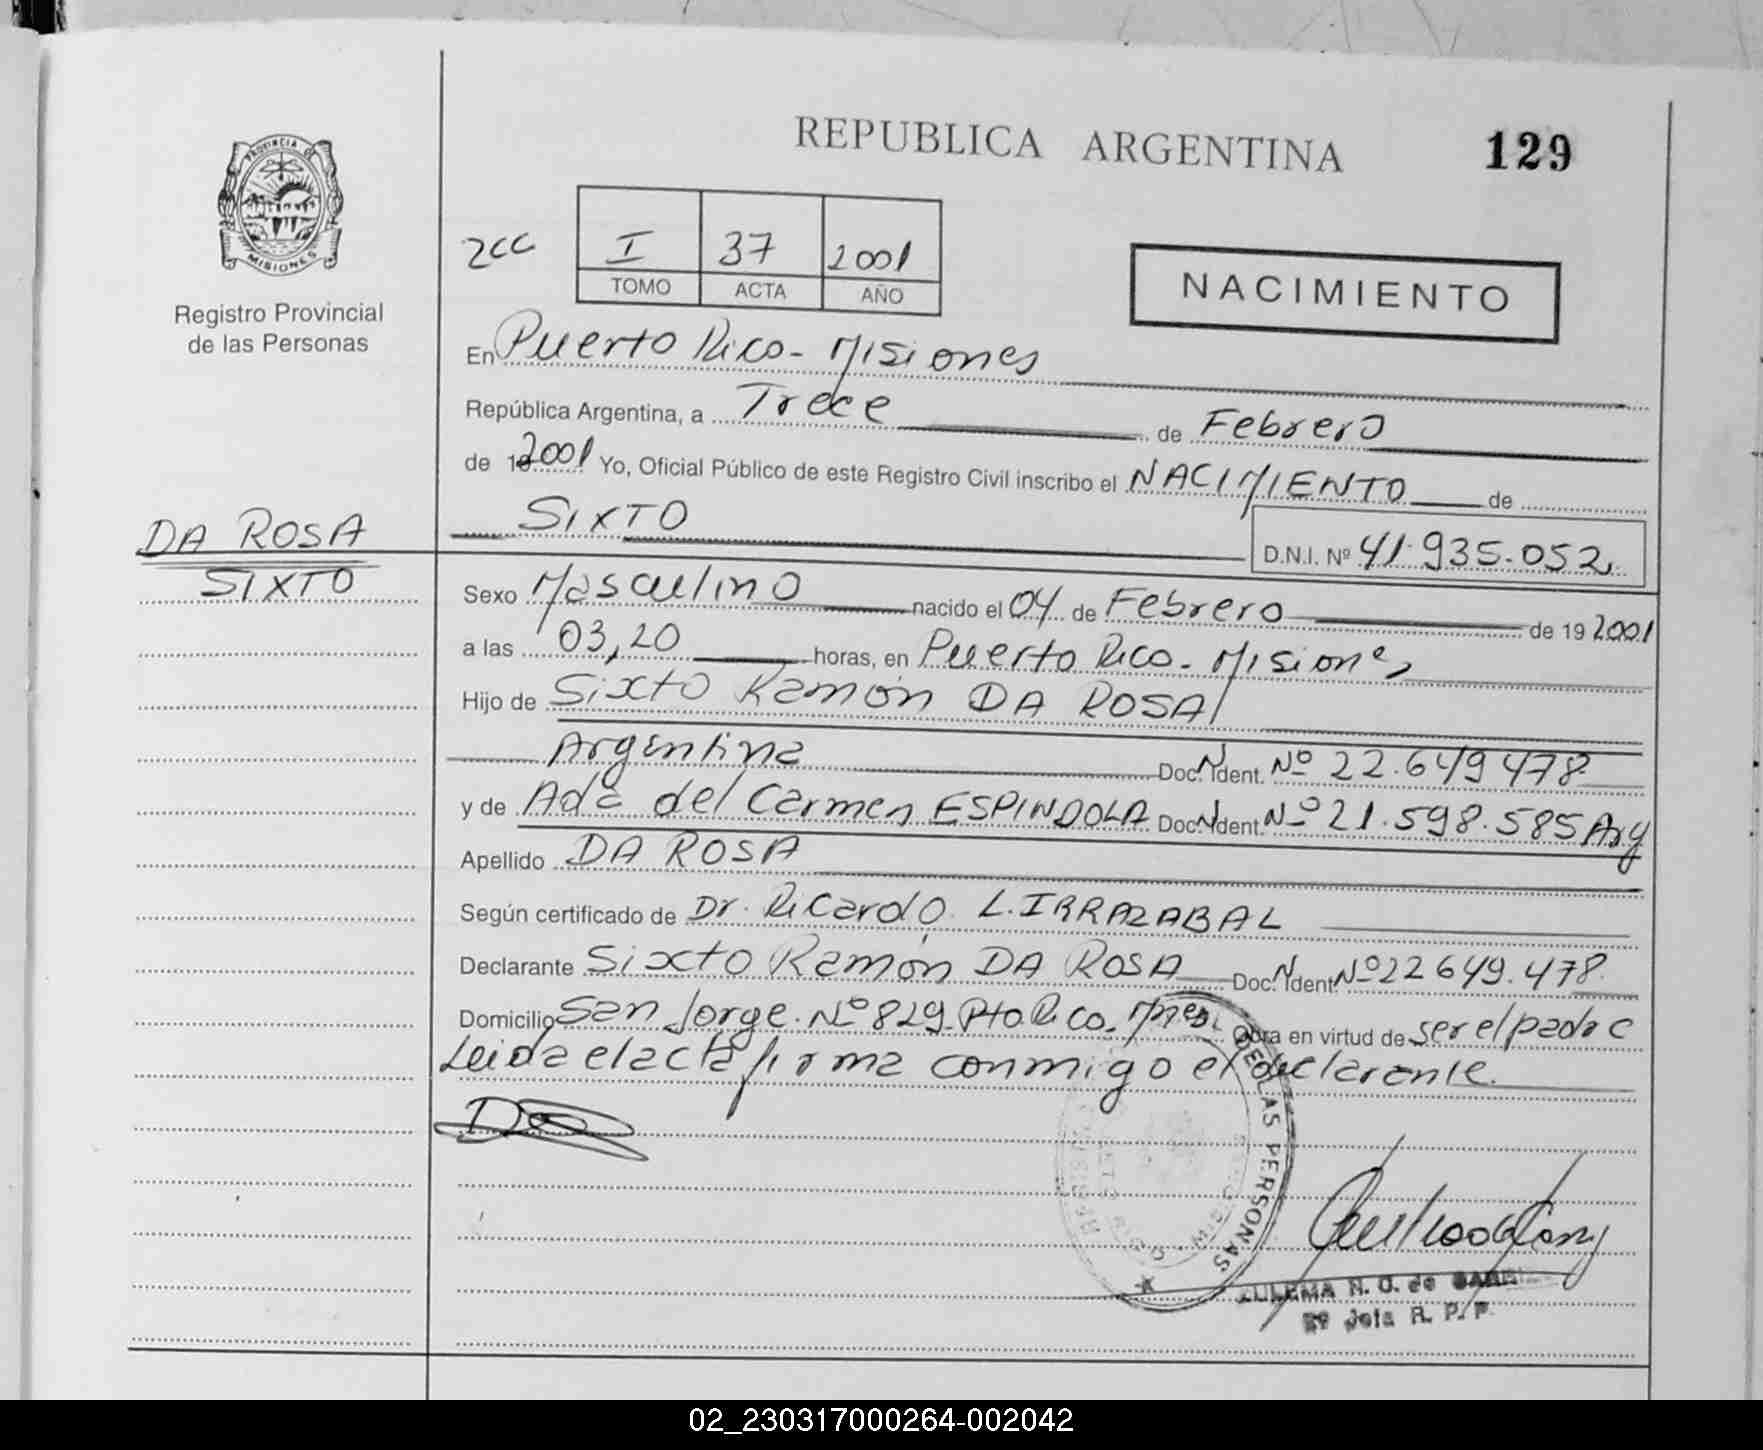 REPUBLICA ARGENTINA
129
PROVINCIA DE
MISIONES
Registro Provincial
de las Personas
2cc
I 37 2001
TOMO ACTA AÑO
NACIMIENTO
En Puerto Rico - Misiones
República Argentina, a Trece de Febrero
de 19 2001 Yo, Oficial Público de este Registro Civil inscribo el NACIMIENTO de
SIXTO
D.N.I. Nº 41.935.052
DA ROSA
SIXTO
Sexo Masculino nacido el 04 de Febrero de 19 2001
a las 03,20 horas, en Puerto Rico - Misiones
Hijo de Sixto Ramón DA ROSA
Argentina Doc. Ident. Nº 22.649.478
y de Ada del Carmen ESPINDOLA Doc. Ident. Nº 21.598.585 Arg
Apellido DA ROSA
Según certificado de Dr. Ricardo L. IRRAZABAL
Declarante Sixto Ramón DA ROSA Doc. Ident. Nº 22649.478
Domicilio San Jorge Nº 829 Pto. Rico. Mnes Obra en virtud de ser el padre
Leida el acta firma conmigo el declarante.
DE LAS PERSONAS
ZULEMA N. G. de
Jefa R. P. P.
02_230317000264-002042